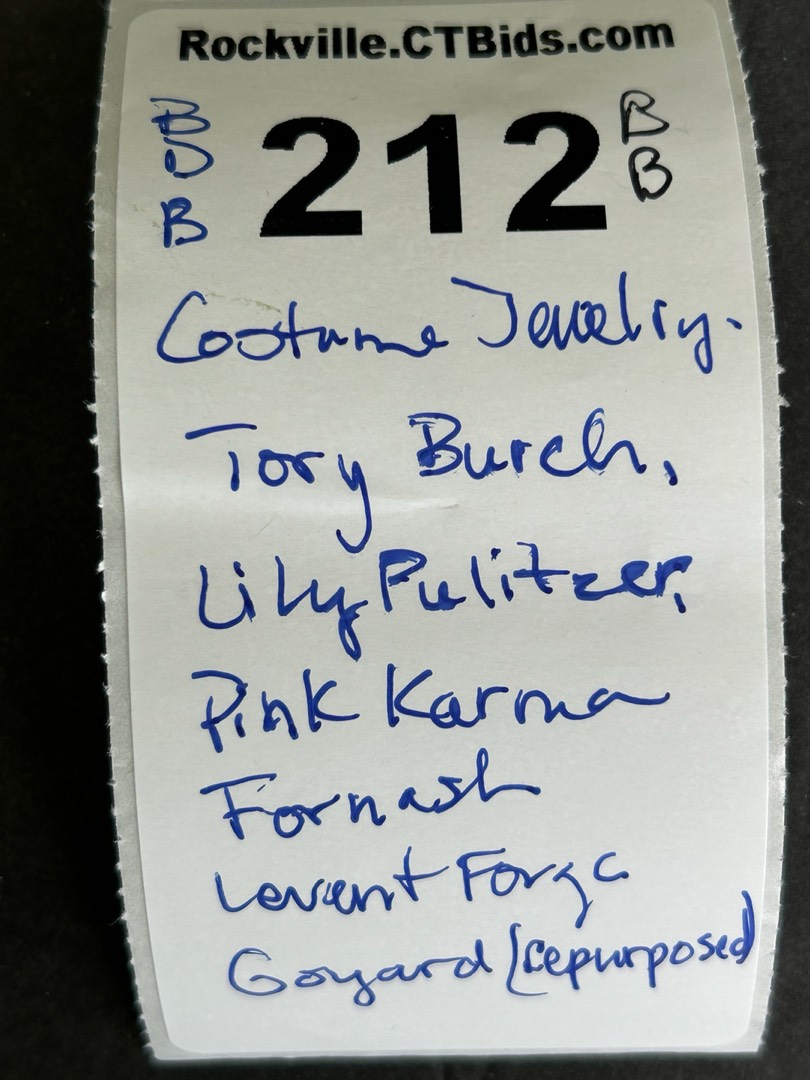 Rockville.CTBids.com
B
B
212
B
B
Costume Jewelry.
Tory Burch,
Lily Pulitzer,
Pink Karma
Fornash
Levent Forza
Goyard (repurposed)